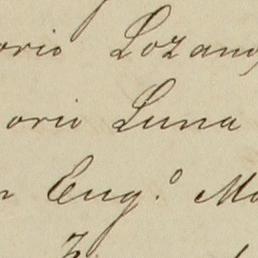 orio Lozano
orio Luna
n Eug.º Ma